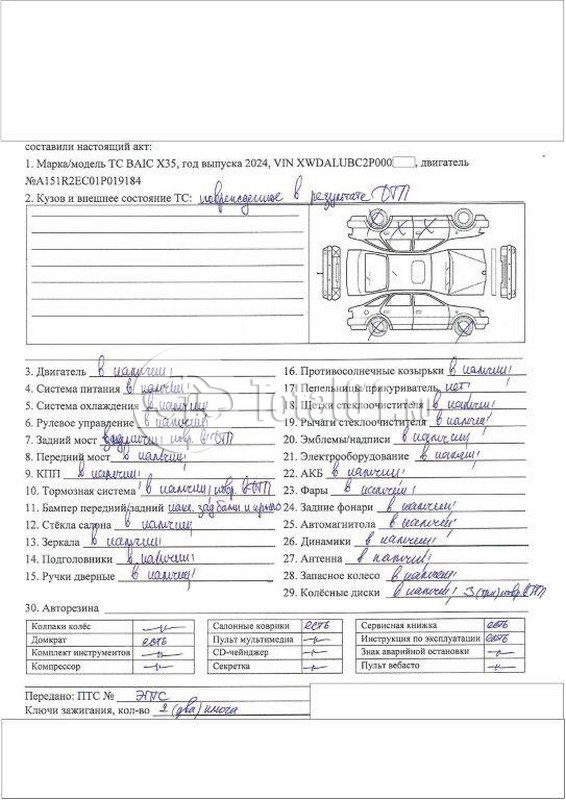 составили настоящий акт:
1. Марка/модель ТС BAIC X35, год выпуска 2024, VIN XWDALUBC2P000 , двигатель
№A151R2EC01P019184
2. Кузов и внешнее состояние ТС: поврежденное в результате ДТП
3. Двигатель в наличии
4. Система питания в наличии
5. Система охлаждения в наличии
6. Рулевое управление в наличии
7. Задний мост повр. в ДТП
8. Передний мост в наличии
9. КПП в наличии
10. Тормозная система в наличии, повр. ДТП
11. Бампер передний/задний
12. Стёкла салона в наличии
13. Зеркала в наличии
14. Подголовники в наличии
15. Ручки дверные в наличии
16. Противосолнечные козырьки в наличии
17. Пепельницы/прикуриватель нет
18. Щетки стеклоочистителя в наличии
19. Рычаги стеклоочистителя в наличии
20. Эмблемы/надписи в наличии
21. Электрооборудование в наличии
22. АКБ в наличии
23. Фары в наличии
24. Задние фонари в наличии
25. Автомагнитола в наличии
26. Динамики в наличии
27. Антенна в наличии
28. Запасное колесо в наличии
29. Колёсные диски в наличии, 3 (три) повр. ДТП
30. Авторезина
Колпаки колёс
Домкрат есть
Комплект инструментов
Компрессор
Салонные коврики есть
Пульт мультимедиа
CD-чейнджер
Секретка
Сервисная книжка есть
Инструкция по эксплуатации есть
Знак аварийной остановки
Пульт вебасто
Передано: ПТС № ЭПТС
Ключи зажигания, кол-во 2 (два) ключа